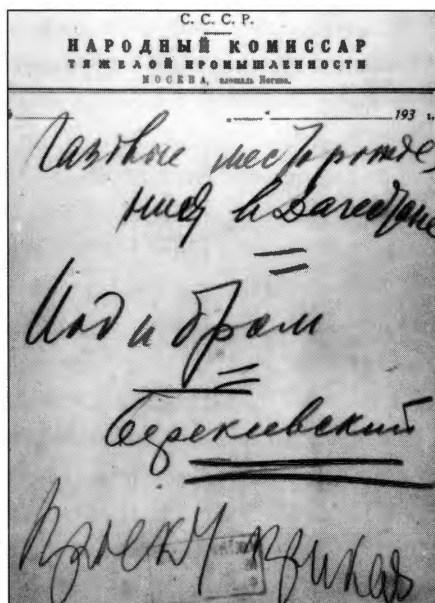 С. С. С. Р.
НАРОДНЫЙ КОМИССАР
ТЯЖЕЛОЙ ПРОМЫШЛЕННОСТИ
МОСКВА, площадь Ногина.
„ “ 193 г.
Газовые месторожде-
ния в Дагестане
Иод и бром
Берекеевский
Проект приказа